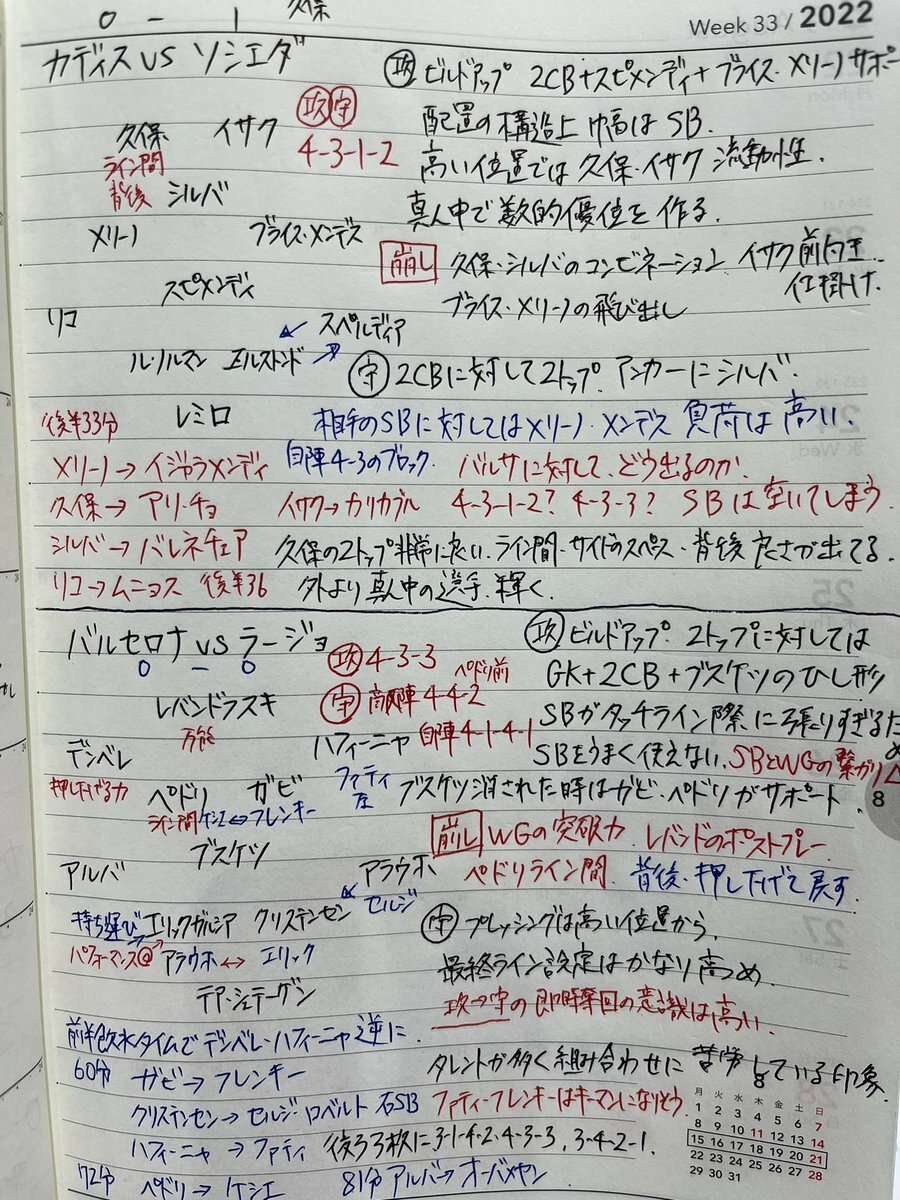 0 - 1 久保
Week 33 / 2022
カディス vs ソシエダ
攻 ビルドアップ 2CB+スビメンディ+ブライス・メリーノサポー
久保 イサク 攻 守
4-3-1-2
配置の構造上 巾高は SB.
ライン間
背後 シルバ
高い位置では 久保・イサク 流動性.
真ん中で 数的優位を 作る.
メリーノ ブライス・メンデス
崩し 久保・シルバのコンビネーション イサク 前向き
仕掛け.
スビメンディ
ブライス・メリーノの飛び出し
リコ スペルディア
ル・ノルマン エルストンド
守 2CBに対して2トップ. アンカーにシルバ.
後半33分 レミロ 相手のSBに対してはメリーノ・メンデス 負荷は高い.
メリーノ→イジャラメンディ 自陣4-3のブロック. バルサに対して、どう出るのか.
久保→アリ・チョ イサク→カリカブル 4-3-1-2? 4-3-3? SBは空いてしまう.
シルバ→バレネチェア 久保の2トップ非常に良い. ライン間・サイドのスペース・背後 良さが出てる.
リコ→ムニョス 後半36 外より真ん中の選手 輝く.
バルセロナ vs ラージョ
0 - 0
攻 ビルドアップ. 2トップに対しては
攻 4-3-3 ペドリ前
GK+2CB+ブスケツのひし形
レバンドフスキ 守 高い陣 4-4-2
万能
SBがタッチライン際に張りすぎるため
デンベレ ハフィーニャ 自陣 4-1-4-1
SBをうまく使えない. SBとWGの繋がり△
押し下げる力 ペドリ ガビ ファティ
左
ブスケツ消された時はガビ・ペドリがサポート.
8
ライン間 ケシエ⇔フレンキー
崩し WGの突破力 レバンドのポストプレー
ブスケツ
ペドリライン間. 背後・押し下げて戻す.
アルバ アラウホ
セルジ
持ち運び エリックガルシア クリステンセン
守 プレッシングは高い位置から.
パフォーマンス◎ アラウホ ↔ エリック
最終ライン設定はかなり高め
テア・シュテーゲン
攻→守の即時奪回の意識は高い.
前半飲水タイムでデンベレ・ハフィーニャ逆に
60分 ガビ→フレンキー
タレントが多く組み合わせに 苦労している印象
クリステンセン→セルジ・ロベルト 右SB
ファティ・フレンキーはキーマンになりそう.
ハフィーニャ→ファティ 後ろ3枚に3-1-4-2・4-3-3、3-4-2-1.
72分 ペドリ→ケシエ 81分アルバ→オーバメヤン
8
月 火 水 木 金 土 日
1 2 3 4 5 6 7
8 9 10 11 12 13 14
15 16 17 18 19 20 21
22 23 24 25 26 27 28
29 30 31